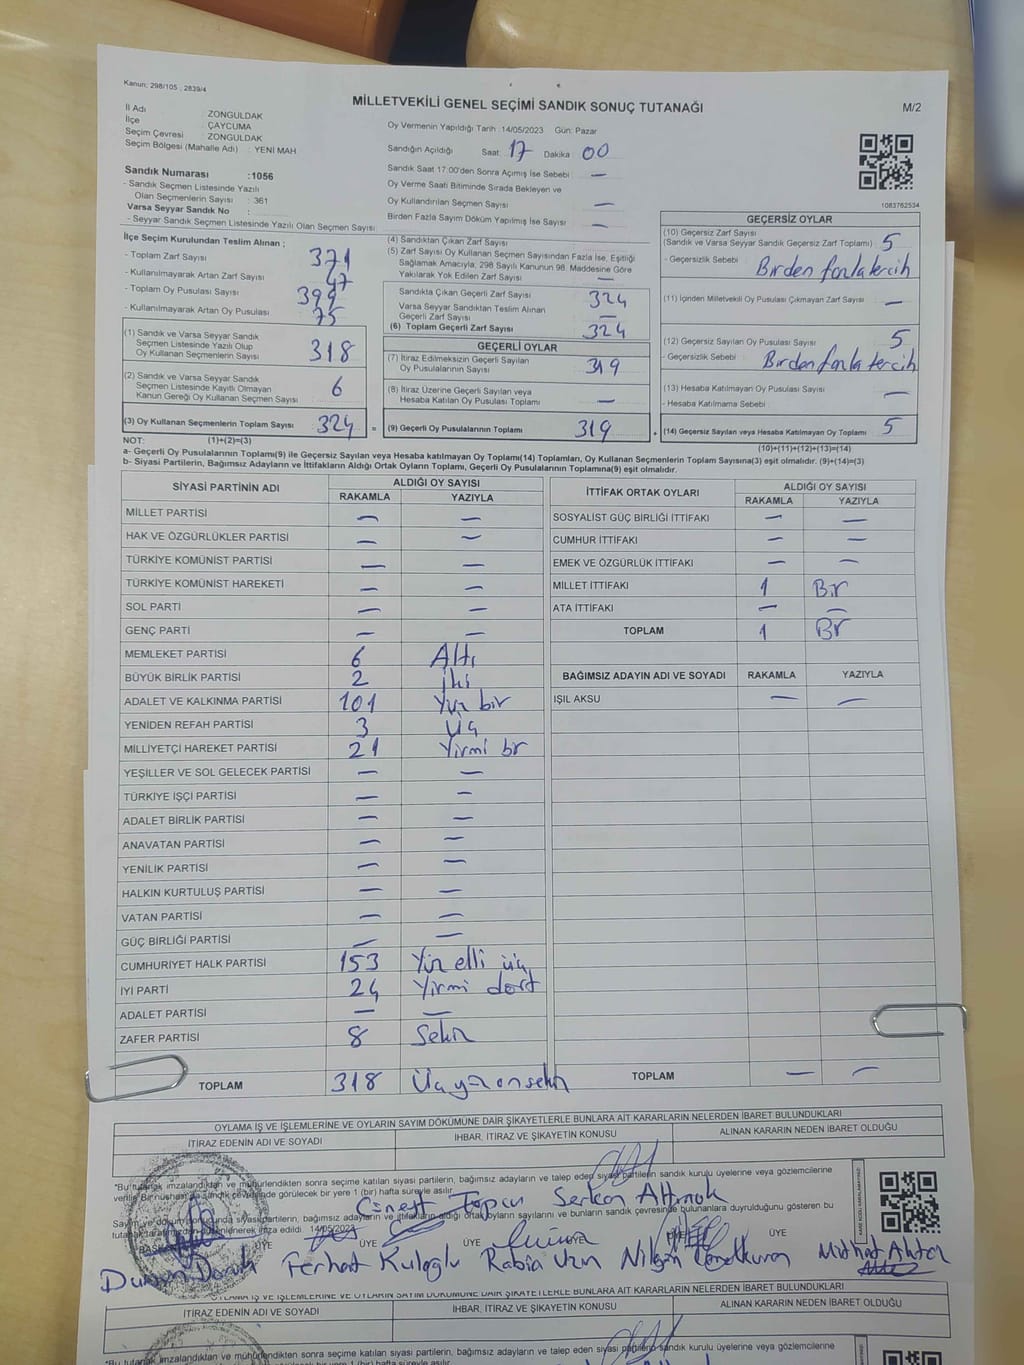 Kanun: 298/105 , 2839/4
MİLLETVEKİLİ GENEL SEÇİMİ SANDIK SONUÇ TUTANAĞI
M/2
İl Adı : ZONGULDAK
İlçe : ÇAYCUMA
Seçim Çevresi : ZONGULDAK
Seçim Bölgesi (Mahalle Adı) : YENİ MAH
Sandık Numarası :1056
- Sandık Seçmen Listesinde Yazılı
Olan Seçmenlerin Sayısı : 361
Varsa Seyyar Sandık No :
- Seyyar Sandık Seçmen Listesinde Yazılı Olan Seçmen Sayısı
Oy Vermenin Yapıldığı Tarih :14/05/2023 Gün: Pazar
Sandığın Açıldığı Saat: 17 Dakika 00
Sandık Saat 17.00'den Sonra Açımış İse Sebebi : —
Oy Verme Saati Bitiminde Sırada Bekleyen ve
Oy Kullandırılan Seçmen Sayısı : —
Birden Fazla Sayım Döküm Yapılmış İse Sayısı : —
1083762534
İlçe Seçim Kurulundan Teslim Alınan ;
- Toplam Zarf Sayısı : 371
- Kullanılmayarak Artan Zarf Sayısı : 47
- Toplam Oy Pusulası Sayısı : 399
- Kullanılmayarak Artan Oy Pusulası : 75
(1) Sandık ve Varsa Seyyar Sandık
Seçmen Listesinde Yazılı Olup
Oy Kullanan Seçmenlerin Sayısı : 318
(2) Sandık ve Varsa Seyyar Sandık
Seçmen Listesinde Kayıtlı Olmayan
Kanun Gereği Oy Kullanan Seçmen Sayısı : 6
(3) Oy Kullanan Seçmenlerin Toplam Sayısı : 324 =
(4) Sandıktan Çıkan Zarf Sayısı :
(5) Zarf Sayısı Oy Kullanan Seçmen Sayısından Fazla İse, Eşitliği
Sağlamak Amacıyla, 298 Sayılı Kanunun 98. Maddesine Göre
Yakılarak Yok Edilen Zarf Sayısı : —
Sandıkta Çıkan Geçerli Zarf Sayısı : 324
Varsa Seyyar Sandıktan Teslim Alınan
Geçerli Zarf Sayısı : —
(6) Toplam Geçerli Zarf Sayısı : 324
GEÇERLİ OYLAR
(7) İtiraz Edilmeksizin Geçerli Sayılan
Oy Pusulalarının Sayısı : 319
(8) İtiraz Üzerine Geçerli Sayılan veya
Hesaba Katılan Oy Pusulası Toplamı : —
(9) Geçerli Oy Pusulalarının Toplamı : 319 +
GEÇERSİZ OYLAR
(10) Geçersiz Zarf Sayısı
(Sandık ve Varsa Seyyar Sandık Geçersiz Zarf Toplamı) : 5
- Geçersizlik Sebebi : Birden fazla tercih
(11) İçinden Milletvekili Oy Pusulası Çıkmayan Zarf Sayısı : —
(12) Geçersiz Sayılan Oy Pusulası Sayısı : 5
- Geçersizlik Sebebi : Birden fazla tercih
(13) Hesaba Katılmayan Oy Pusulası Sayısı : —
- Hesaba Katılmama Sebebi :
(14) Geçersiz Sayılan veya Hesaba Katılmayan Oy Toplamı : 5
NOT: (1)+(2)=(3)
(10)+(11)+(12)+(13)=(14)
a- Geçerli Oy Pusulalarının Toplamı(9) ile Geçersiz Sayılan veya Hesaba katılmayan Oy Toplamı(14) Toplamları, Oy Kullanan Seçmenlerin Toplam Sayısına(3) eşit olmalıdır. (9)+(14)=(3)
b- Siyasi Partilerin, Bağımsız Adayların ve İttifakların Aldığı Ortak Oyların Toplamı, Geçerli Oy Pusulalarının Toplamına(9) eşit olmalıdır.
SİYASİ PARTİNİN ADI ALDIĞI OY SAYISI
RAKAMLA YAZIYLA
MİLLET PARTİSİ — —
HAK VE ÖZGÜRLÜKLER PARTİSİ — —
TÜRKİYE KOMÜNİST PARTİSİ — —
TÜRKİYE KOMÜNİST HAREKETİ — —
SOL PARTİ — —
GENÇ PARTİ — —
MEMLEKET PARTİSİ 6 Altı
BÜYÜK BİRLİK PARTİSİ 2 İki
ADALET VE KALKINMA PARTİSİ 101 Yüz bir
YENİDEN REFAH PARTİSİ 3 Üç
MİLLİYETÇİ HAREKET PARTİSİ 21 Yirmi bir
YEŞİLLER VE SOL GELECEK PARTİSİ — —
TÜRKİYE İŞÇİ PARTİSİ — —
ADALET BİRLİK PARTİSİ — —
ANAVATAN PARTİSİ — —
YENİLİK PARTİSİ — —
HALKIN KURTULUŞ PARTİSİ — —
VATAN PARTİSİ — —
GÜÇ BİRLİĞİ PARTİSİ — —
CUMHURİYET HALK PARTİSİ 153 Yüz elli üç
İYİ PARTİ 24 Yirmi dört
ADALET PARTİSİ — —
ZAFER PARTİSİ 8 Sekiz
TOPLAM 318 Üçyüzonsekiz
İTTİFAK ORTAK OYLARI ALDIĞI OY SAYISI
RAKAMLA YAZIYLA
SOSYALİST GÜÇ BİRLİĞİ İTTİFAKI — —
CUMHUR İTTİFAKI — —
EMEK VE ÖZGÜRLÜK İTTİFAKI — —
MİLLET İTTİFAKI 1 Bir
ATA İTTİFAKI — —
TOPLAM 1 Bir
BAĞIMSIZ ADAYIN ADI VE SOYADI RAKAMLA YAZIYLA
IŞIL AKSU — —
TOPLAM — —
OYLAMA İŞ VE İŞLEMLERİNE VE OYLARIN SAYIM DÖKÜMÜNE DAİR ŞİKAYETLERLE BUNLARA AİT KARARLARIN NELERDEN İBARET BULUNDUKLARI
İTİRAZ EDENİN ADI VE SOYADI İHBAR, İTİRAZ VE ŞİKAYETİN KONUSU ALINAN KARARIN NEDEN İBARET OLDUĞU
"Bu tutanak imzalandıktan ve mühürlendikten sonra seçime katılan siyasi partilerin, bağımsız adayların ve talep eden siyasi partilerin sandık kurulu üyelerine veya gözlemcilerine
verilir. Bir nüshası da sandık çevresinde görülecek bir yere 1 (bir) hafta süreyle asılır.
Cüneyt Topcu Serkan Altınok
Sayım ve döküm sonucunda siyasi partilerin, bağımsız adayların ve ittifakların aldığı ortak oyların sayılarını ve bunların sandık çevresinde bulunanlara duyrulduğunu gösteren bu
tutanak tarafımızdan düzenlenerek imza edildi. 14/05/2023
BAŞKAN ÜYE ÜYE ÜYE ÜYE ÜYE
Ferhat Kuloğlu Rabia Uzun Nilgün Mithat
OYLAMA İŞ VE İŞLEMLERİNE VE OYLARIN SAYIM DÖKÜMÜNE DAİR ŞİKAYETLERLE BUNLARA AİT KARARLARIN NELERDEN İBARET BULUNDUKLARI
İTİRAZ EDENİN ADI VE SOYADI İHBAR, İTİRAZ VE ŞİKAYETİN KONUSU ALINAN KARARIN NEDEN İBARET OLDUĞU
"Bu tutanak imzalandıktan ve mühürlendikten sonra seçime katılan siyasi partilerin, bağımsız adayların ve talep eden siyasi partilerin sandık kurulu üyelerine veya gözlemcilerine